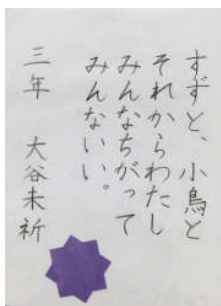 すずと、小鳥と
それからわたし
みんなちがって
みんないい。
三年 大谷未祈